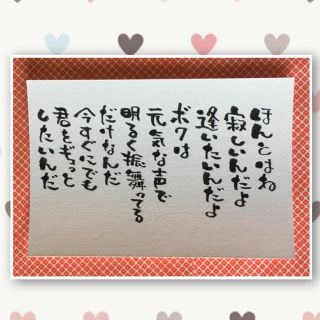 ほんとはね
寂しいんだよ
逢いたいんだよ
ボクは
元気な声で
明るく振舞ってる
だけなんだ
今すぐにでも
君をギュっと
したいんだ